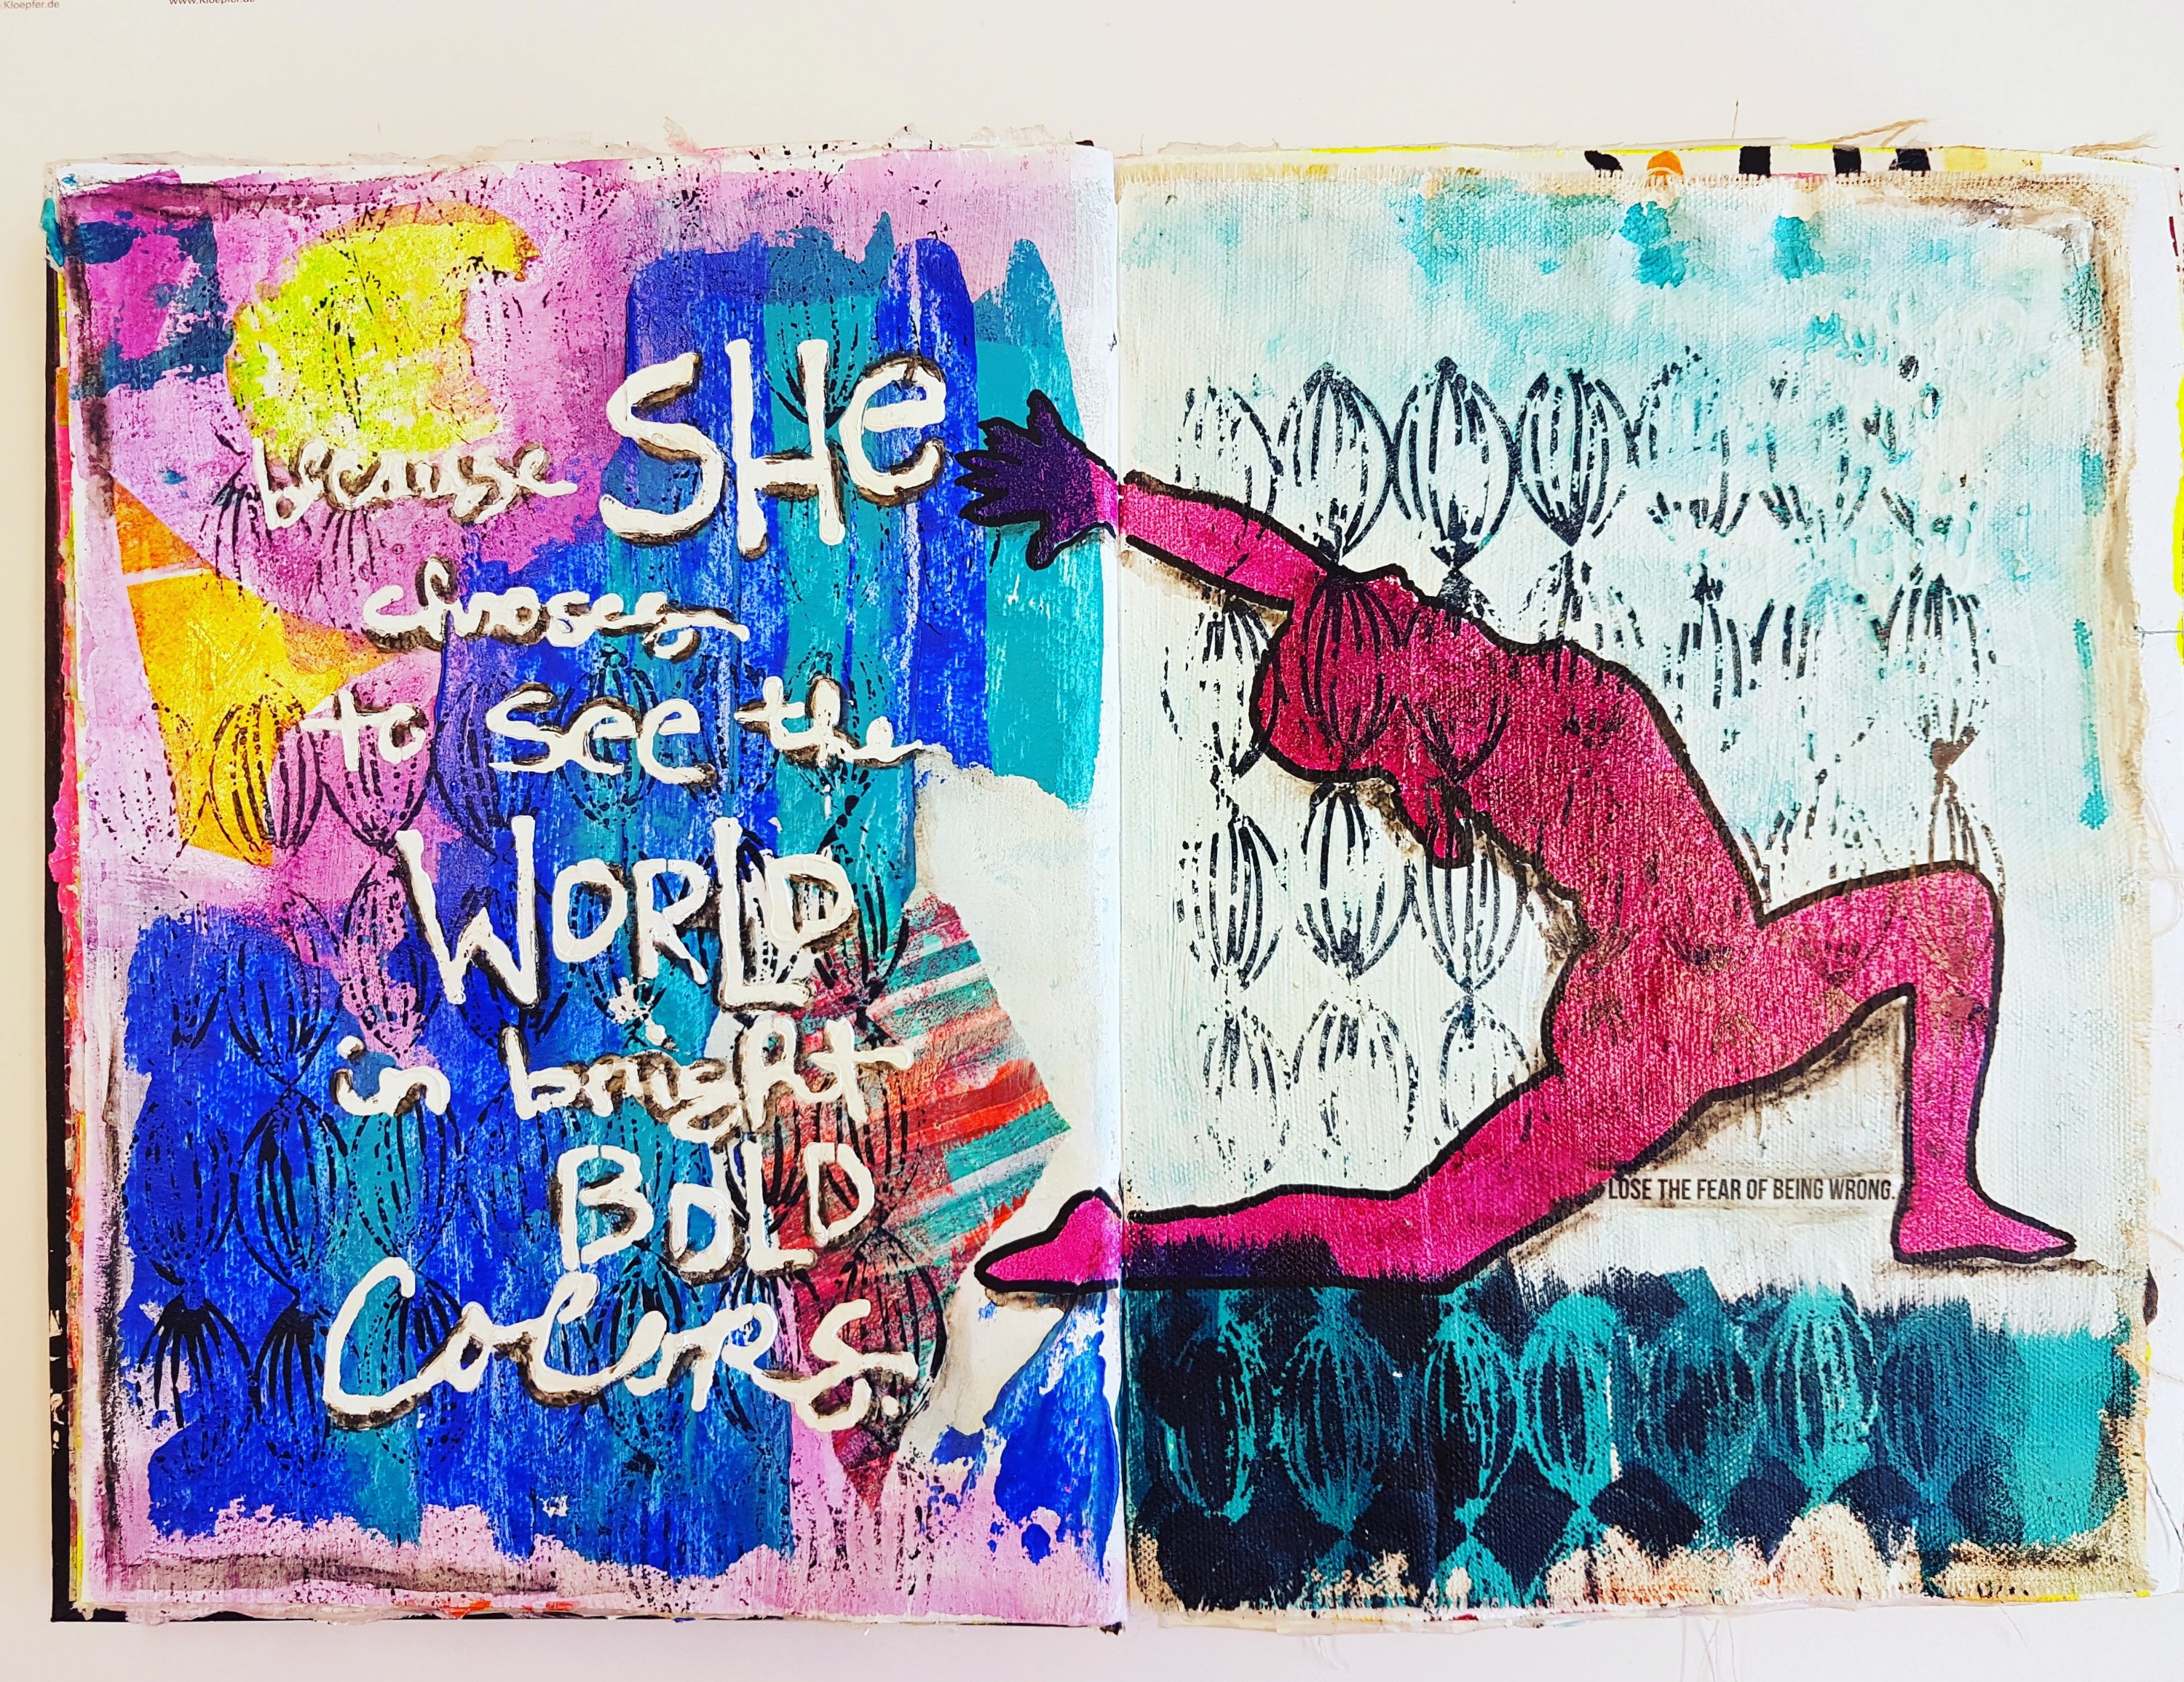 .Kloepfer.de
www.Kloepfer.de
because SHe
chooses
to see the
WORLD
in bright
BOLD
ColoRs.
LOSE THE FEAR OF BEING WRONG.